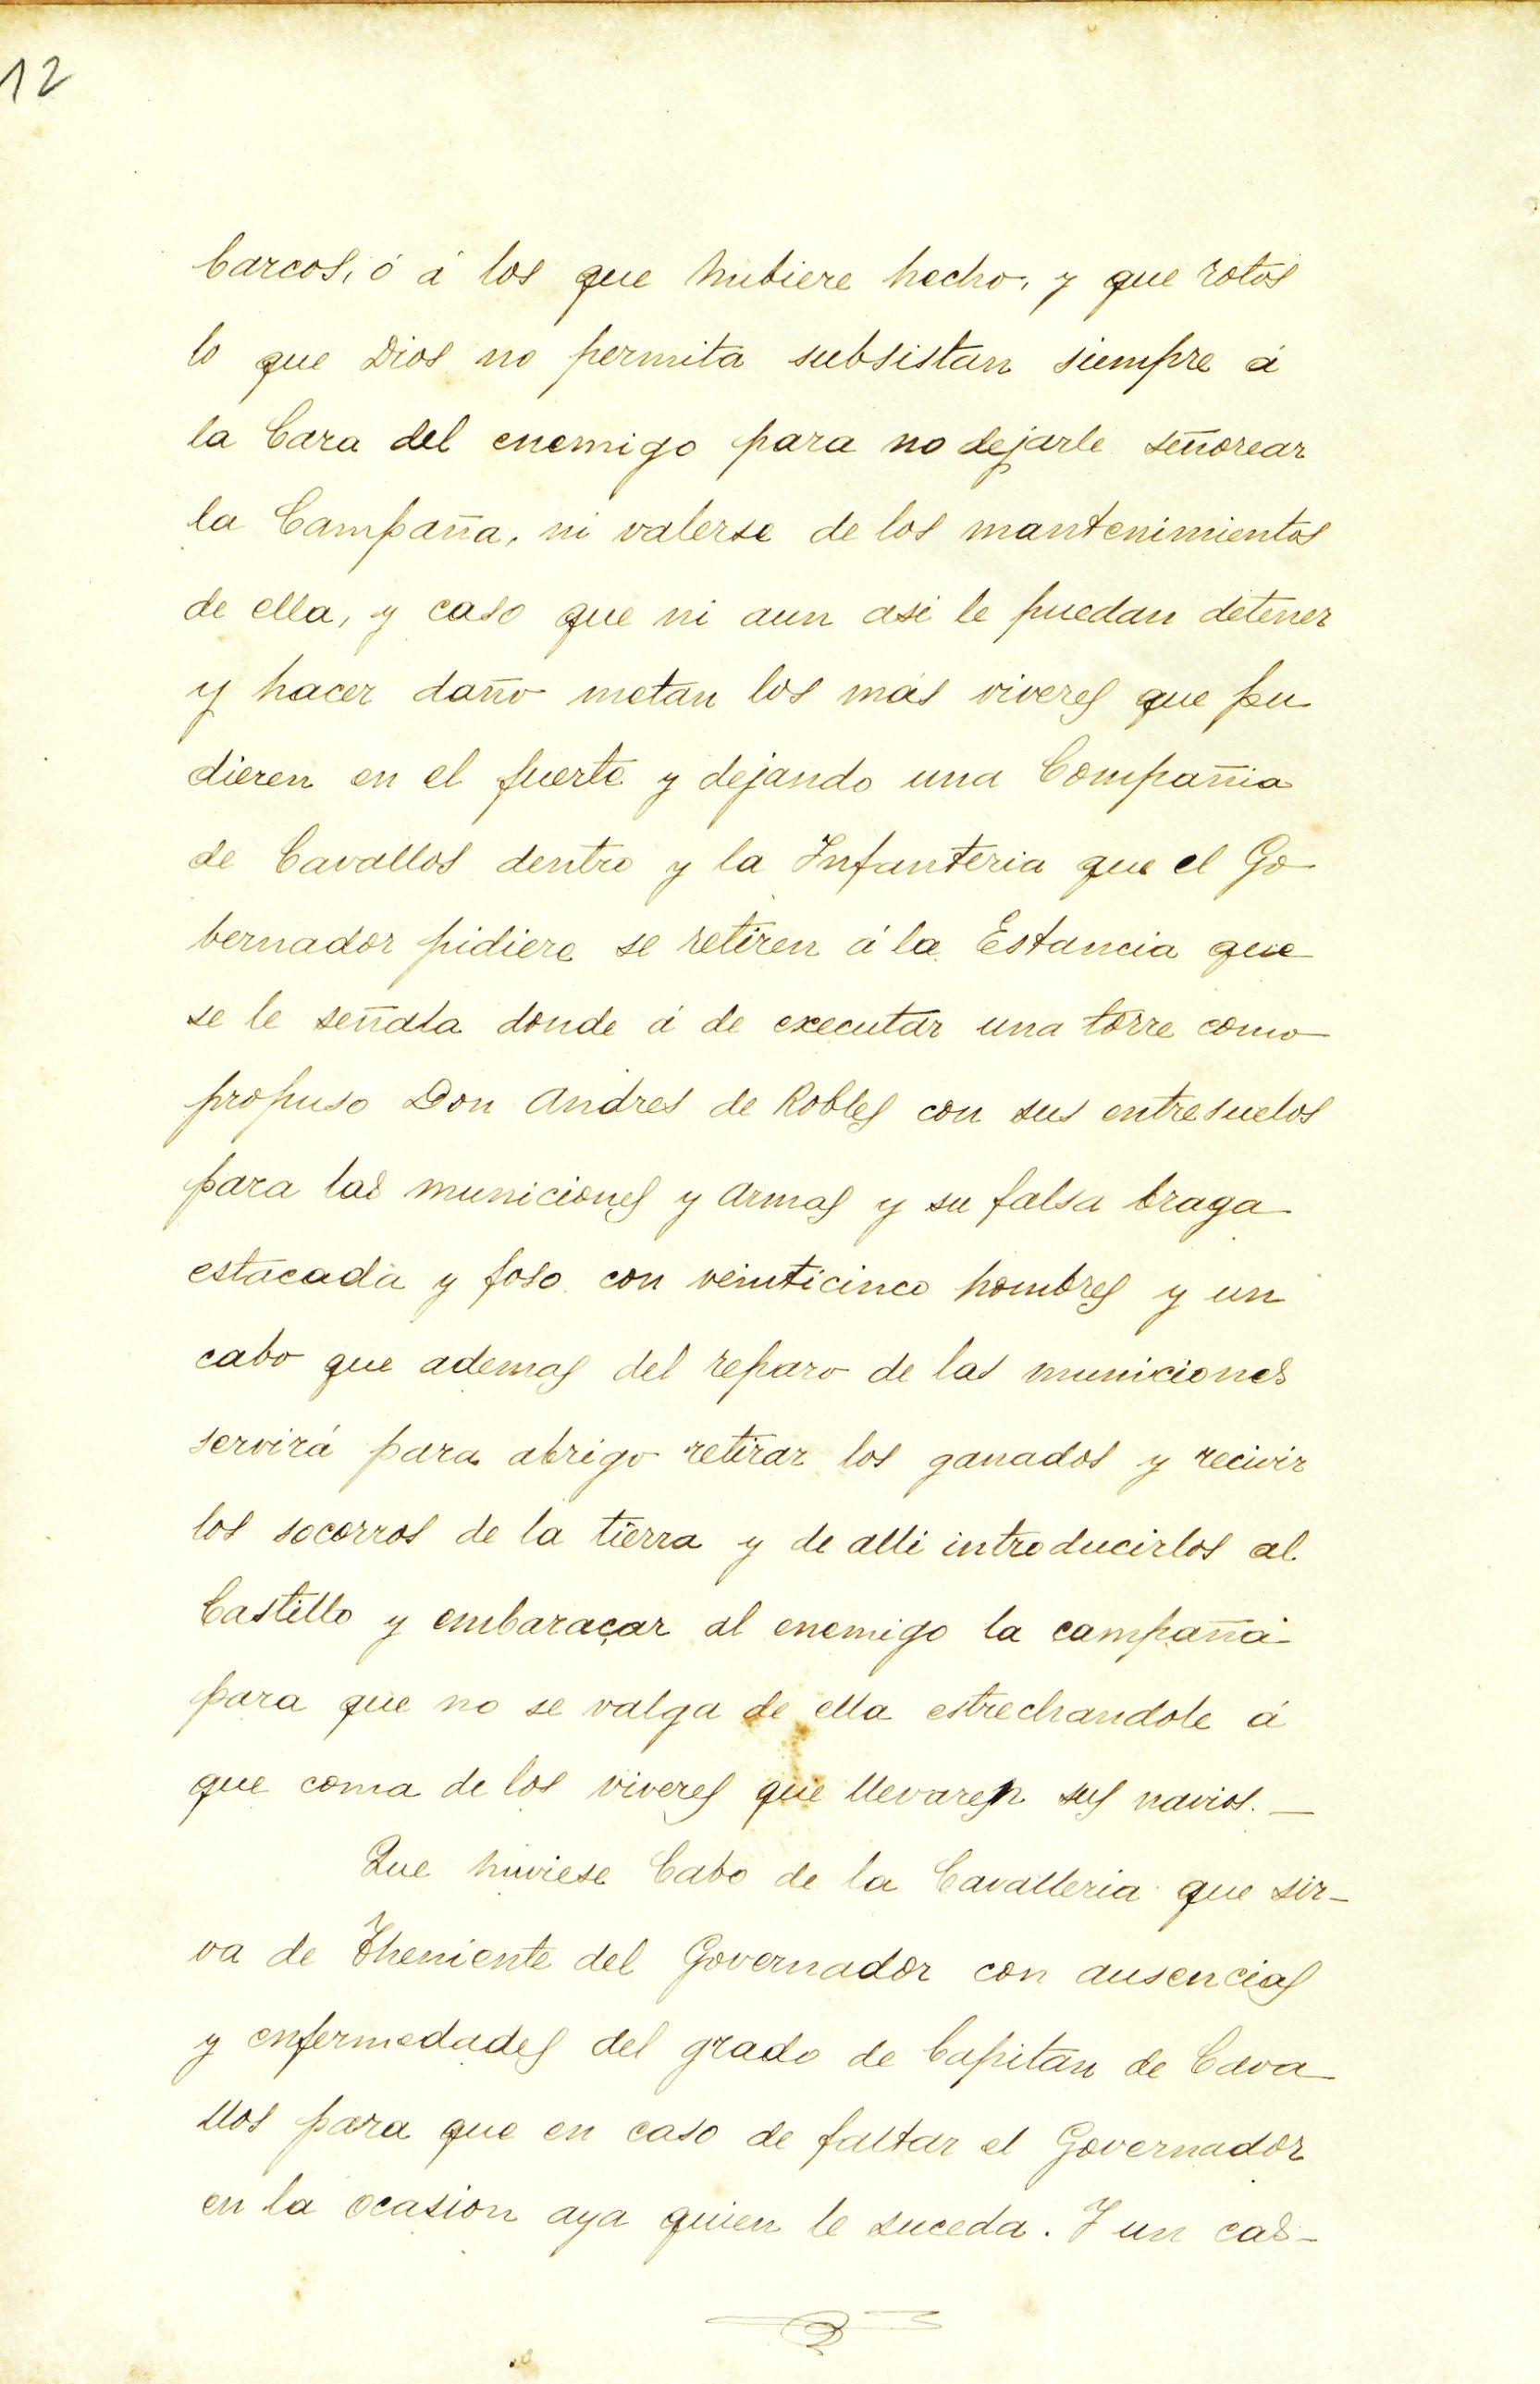 12
barcos, ó á los que hubiere hecho, y que rotos
lo que Dios no permita subsistan siempre á
la Cara del enemigo para no dejarle señorear
la Campaña, ni valerse de los mantenimientos
de ella, y caso que ni aun asi le puedan detener
y hacer daño metan los más viveres que pu
dieren en el fuerte y dejando una Compañia
de Cavallos dentro y la Infanteria que el Go
bernador pidiere se retiren á la Estancia que
se le señala donde á de executar una torre como
propuso Don Andres de Robles con sus entresuelos
para las municiones y Armas y su falsa braga
estacada y foso con veinticinco hombres y un
cabo que ademas del reparo de las municiones
servirá para abrigo retirar los ganados y recivir
los socorros de la tierra y de alli introducirlos al
Castillo y embaraçar al enemigo la campaña
para que no se valga de ella estrechandole á
que coma de los viveres que llevaren sus navios. —
Que huviese Cabo de la Cavalleria que sir-
va de Theniente del Governador con ausencias
y enfermedades del grado de Capitan de Cava
llos para que en caso de faltar el Governador
en la ocasion aya quien le suceda. Y un cas-